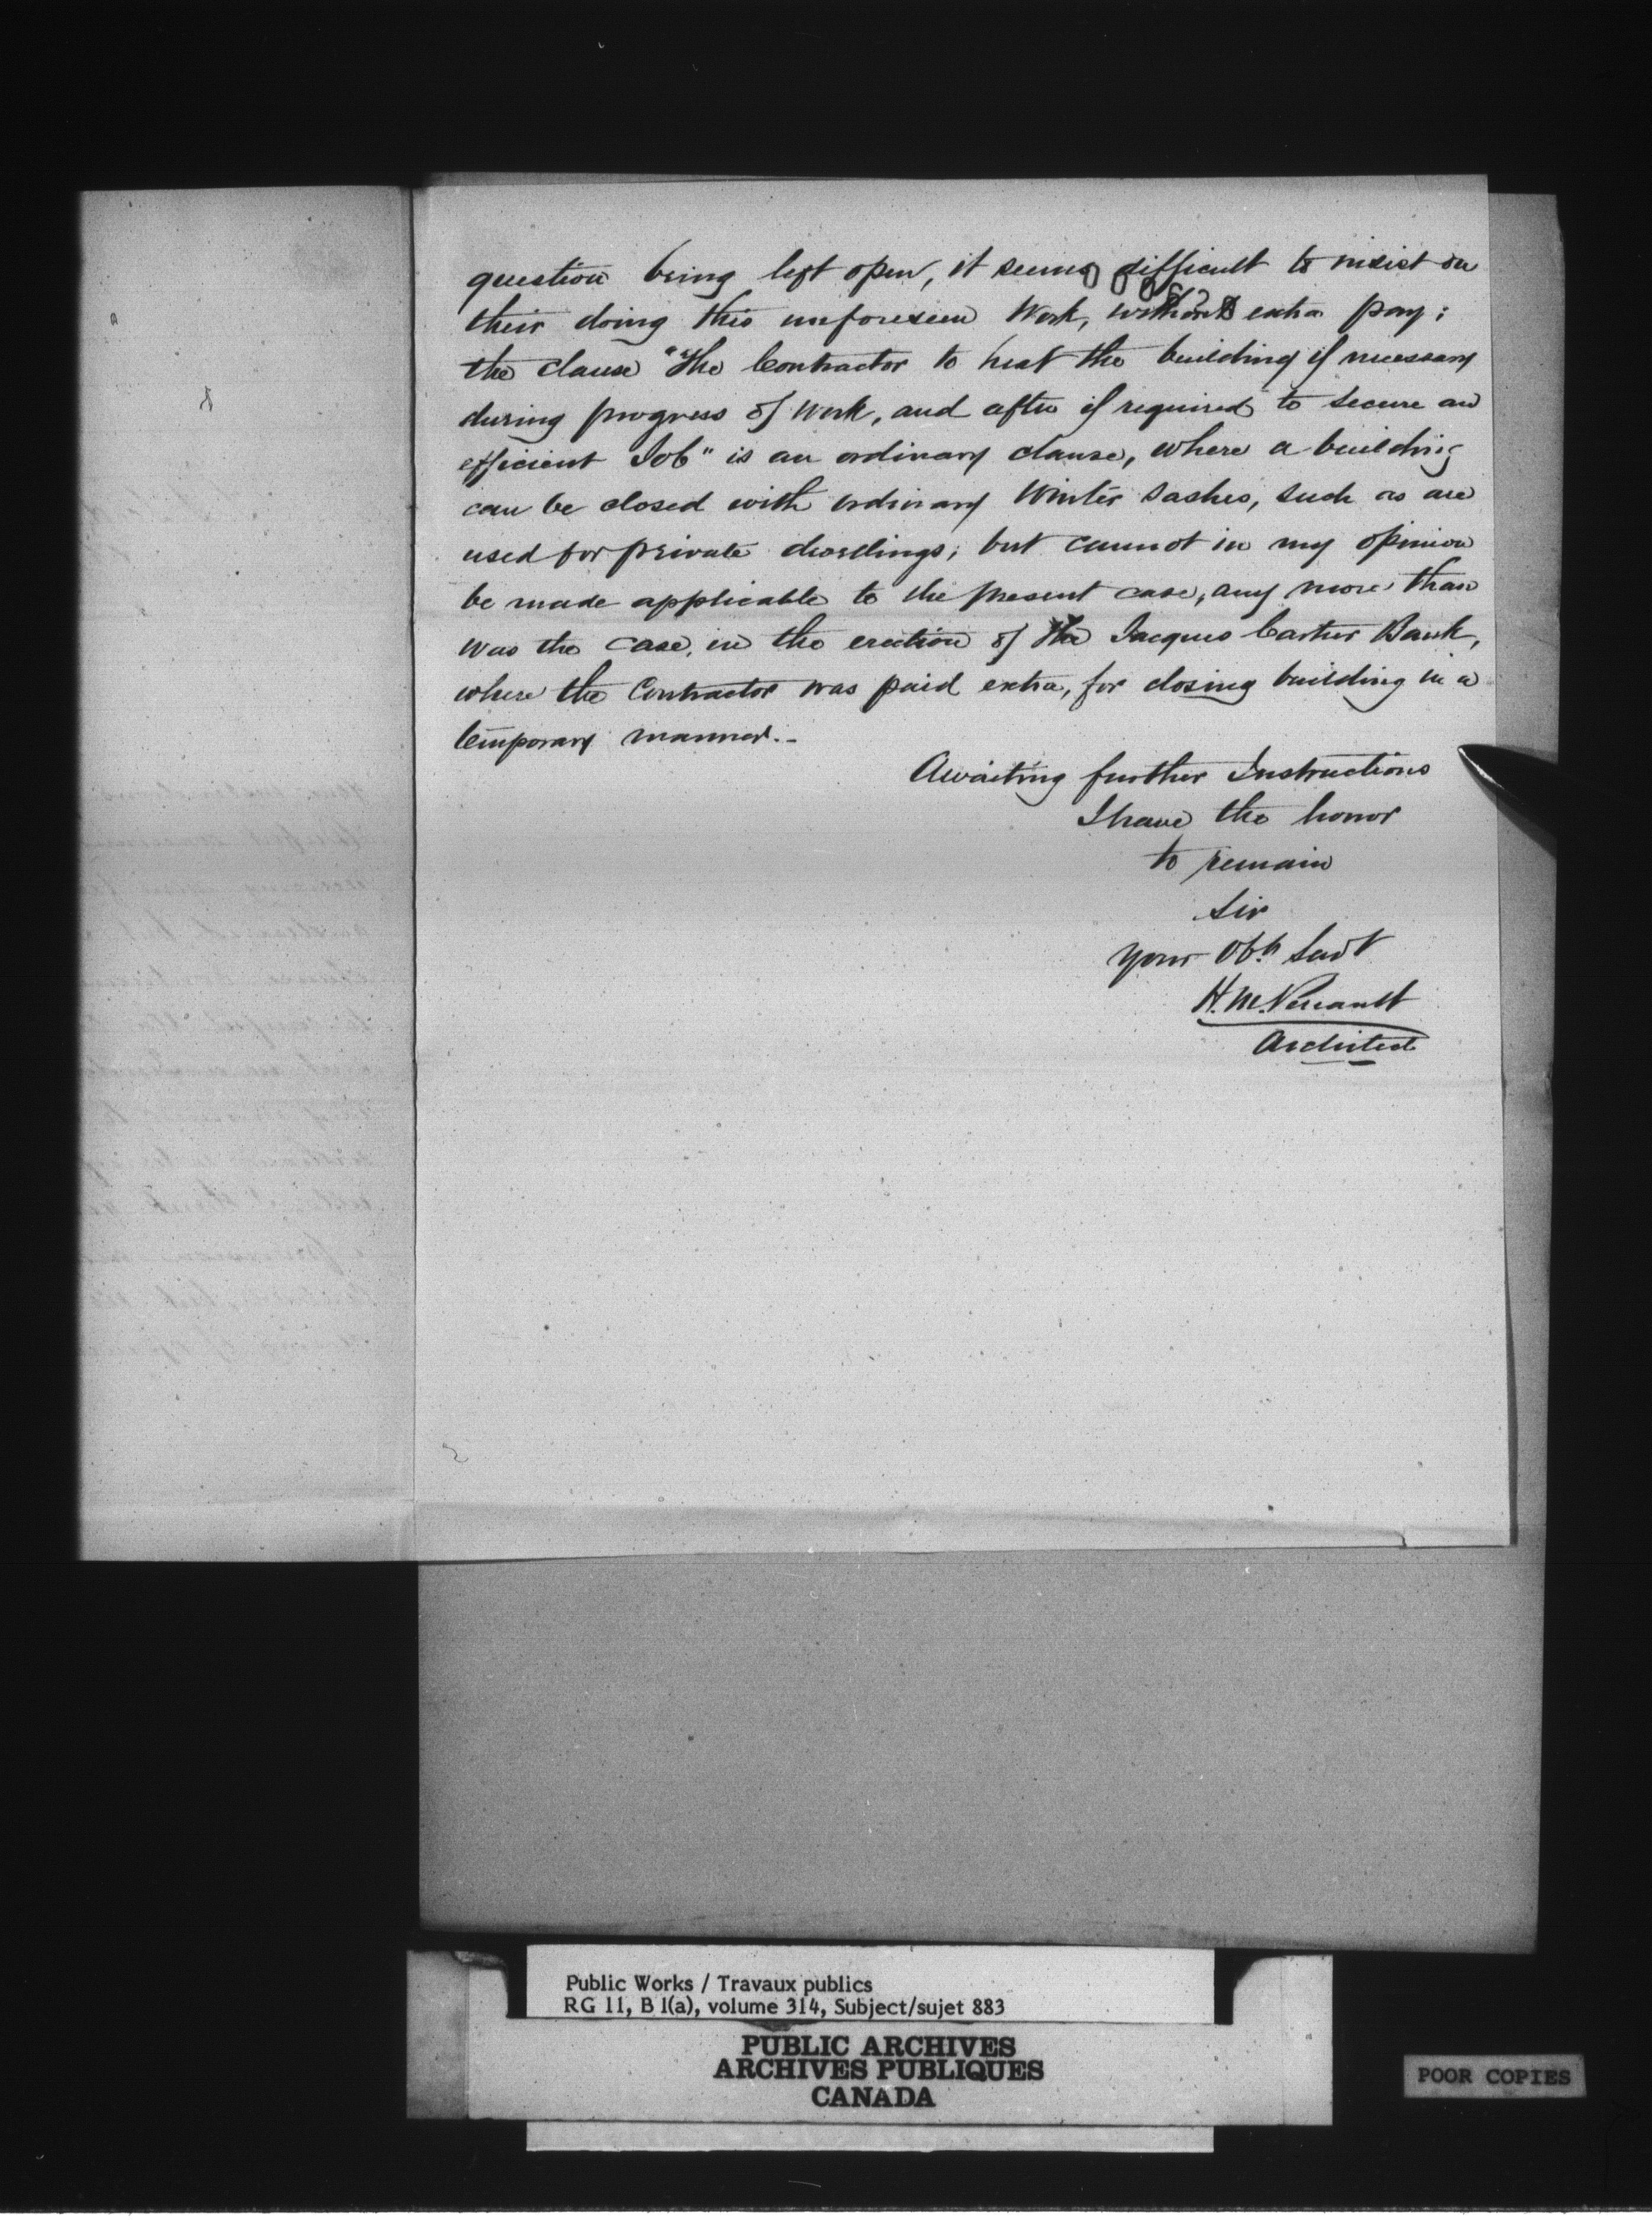 question being left open, it seems difficult to insist on
their doing this unforeseen Work, without extra pay;
the clause "The Contractor to heat the building if necessary
during progress of work, and after if required to secure an
efficient Job" is an ordinary clause, where a building
can be closed with ordinary Winter Sashes, such as are
used for private dwellings; but cannot in my opinion
be made applicable to the present case, any more than
was the case, in the erection of the Jacques Cartier Bank,
where the Contractor was paid extra, for closing building in a
temporary manner.-
Awaiting further Instructions
I have the honor
to remain
Sir
Your Obt Servt
H. M. Perrault
Architect
Public Works / Travaux publics
RG 11, B 1(a), volume 314, Subject/sujet 883
PUBLIC ARCHIVES
ARCHIVES PUBLIQUES
CANADA
POOR COPIES